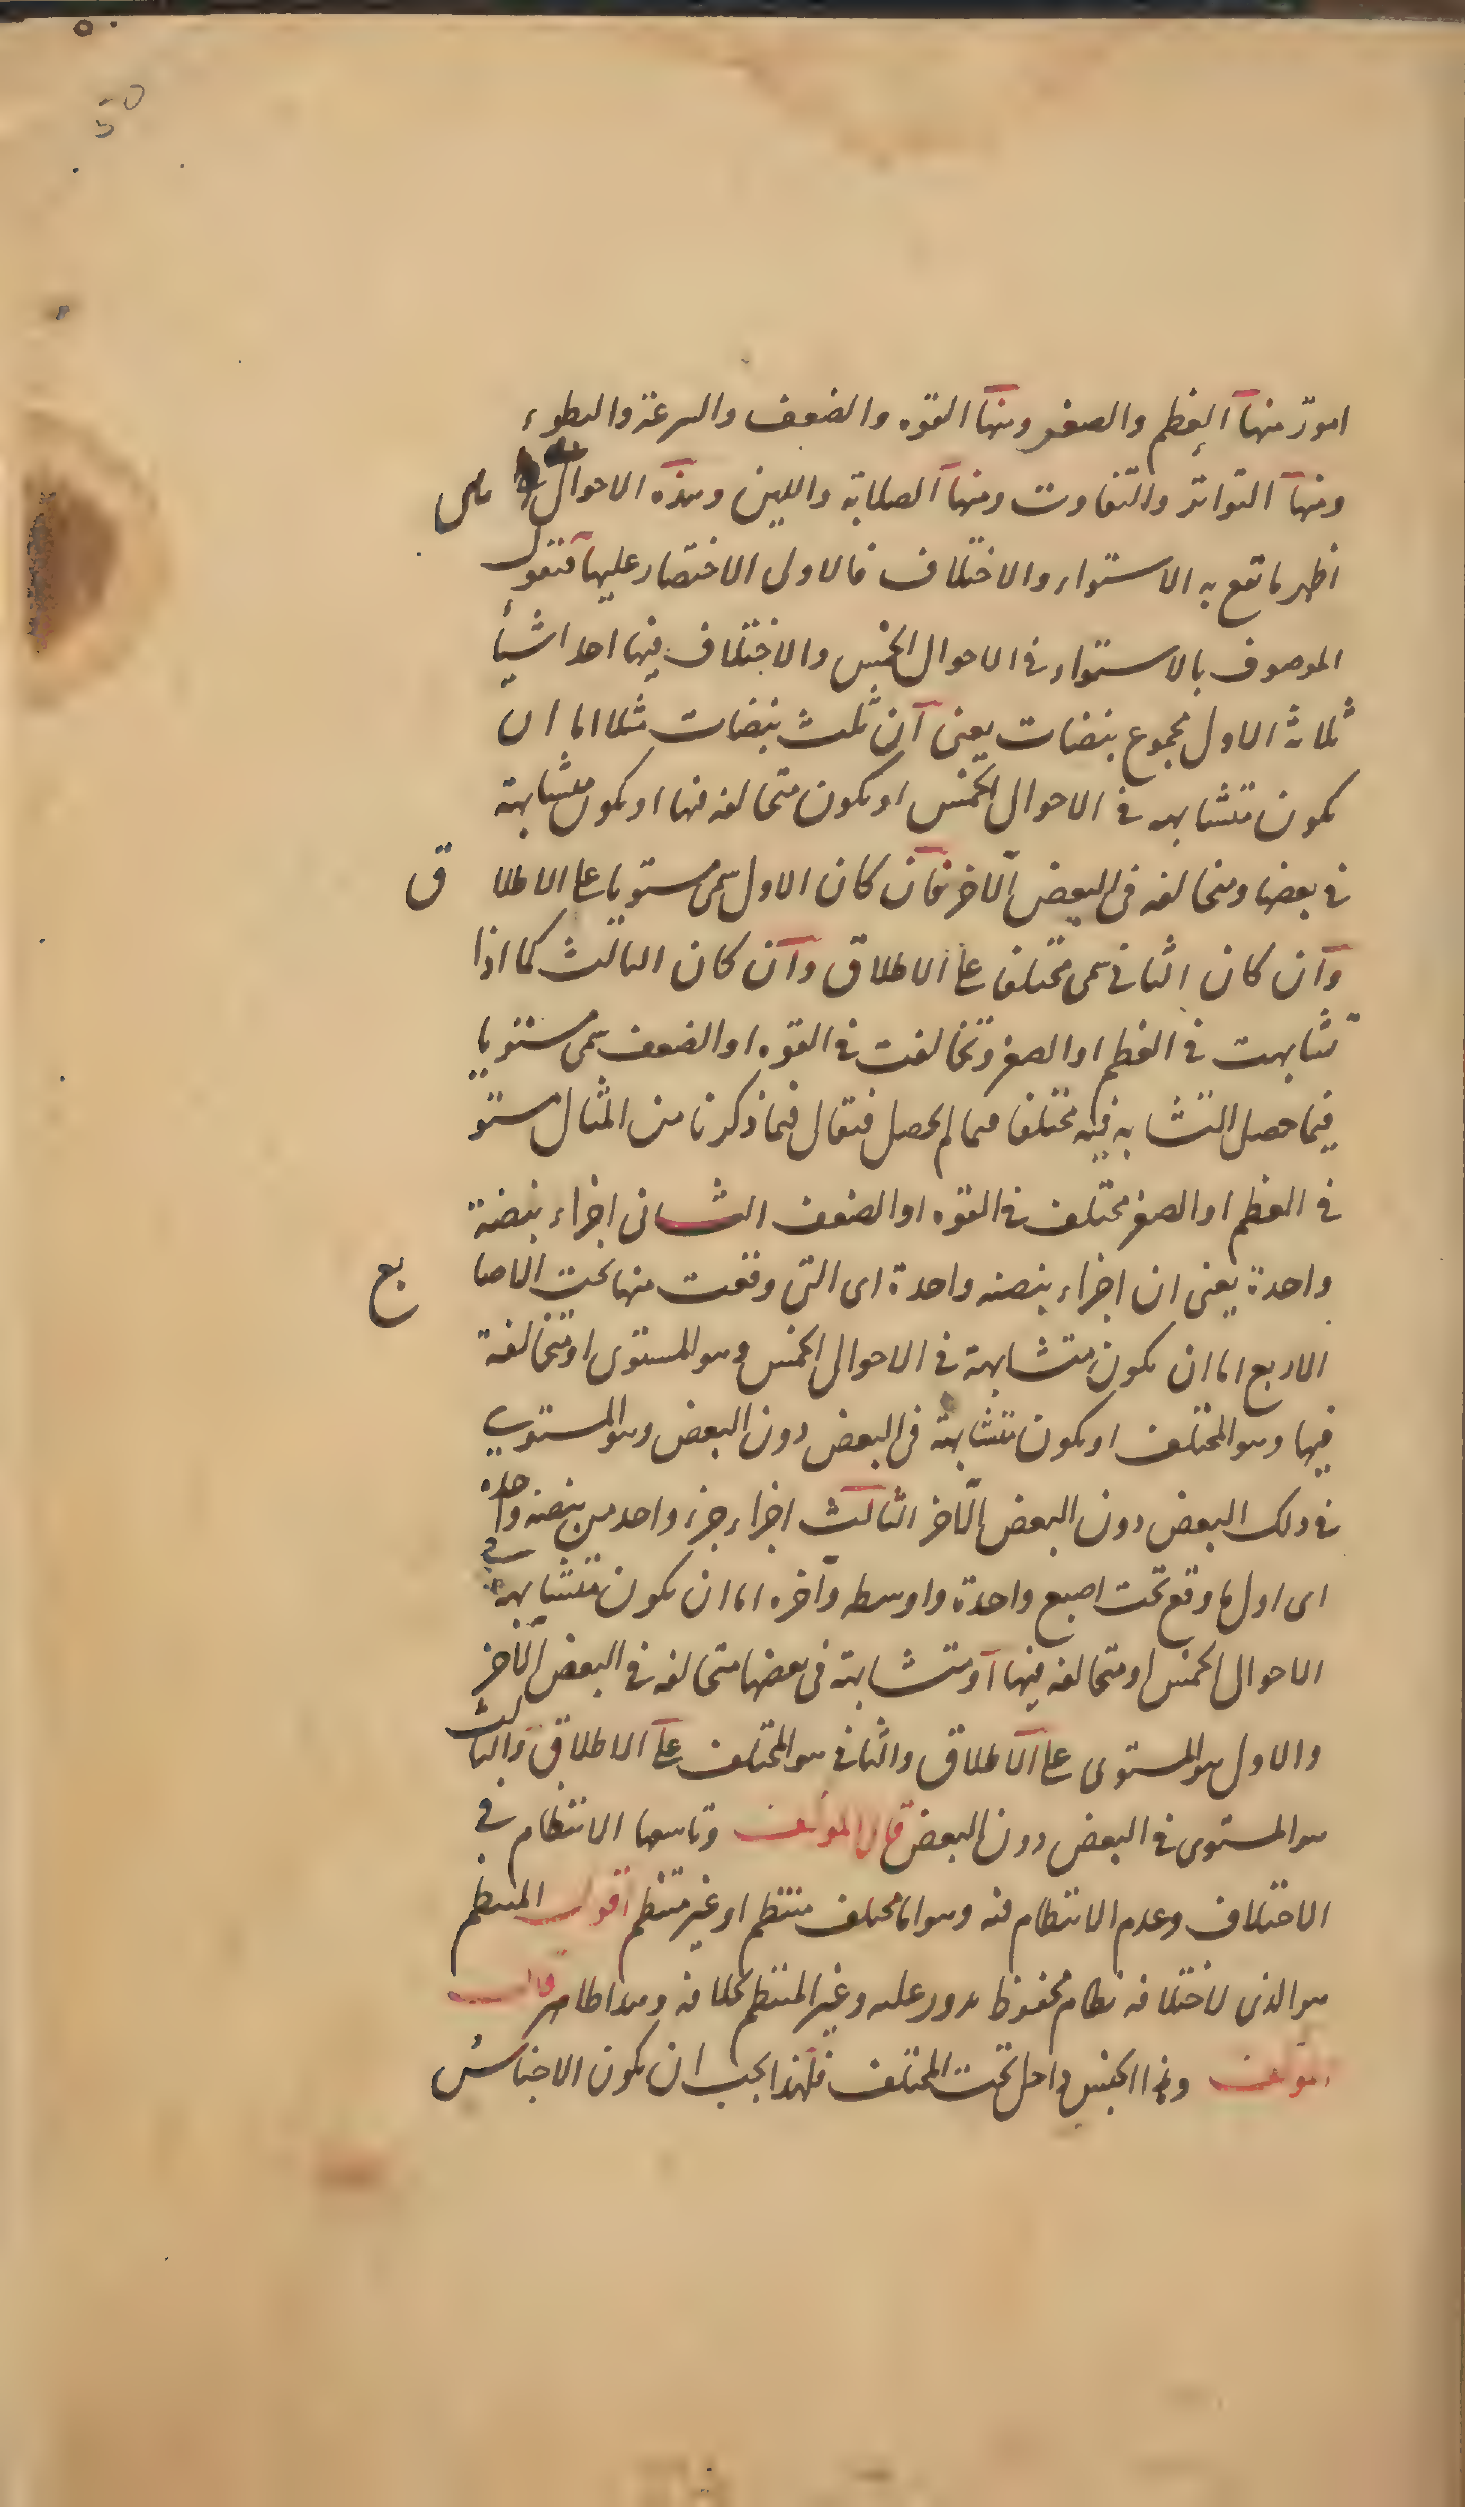 امور منها العظم والصغر ومنها القوه والضعف والسرعة والبطوء
ومنها التواتر والتفاوت ومنها الصلابة واللين وهذه الاحوال هى
اظهر ما تقع به الاستواء والاختلاف فالاولى الاختصار عليها فنقول
الموصوف بالاستواء فى الاحوال الخمس والاختلاف فيها احد اشيأ
ثلاثة الاول مجموع نبضات يعنى ان ثلث نبضات مثلا اما ان
يكون متشابهه فى الاحوال الخمس او يكون متخالفه فيها او يكون متشابهة
فى بعضها ومتخالفه فى البعض الآخر فان كان الاول سمى مستويا على الاطلاق
وان كان الثانى سمى مختلفا على الاطلاق وان كان الثالث كما اذا
تشابهت فى العظم او الصغر وتخالفت فى القوه او الضعف سمى مستويا
فيما حصل التشابه فيه مختلفا فيما لم يحصل فيقال فيما ذكرنا من المثال مستو
فى العظم او الصغر مختلف فى القوه او الضعف الثانى اجزاء نبضة
واحدة يعنى ان اجزاء نبضه واحدة اى التى وقعت منها تحت الاصابع
الاربع اما ان يكون متشابهة فى الاحوال الخمس وهو المستوى او متخالفة
فيها وهو المختلف او يكون متشابهة فى البعض دون البعض وهو المستوى
فى ذلك البعض دون البعض الآخر الثالث اجزاء جزء واحد من نبضه واحده
اى اول ما وقع تحت اصبع واحدة واوسطه وآخره اما ان يكون متشابهة فى
الاحوال الخمس او متخالفه فيها او متشابهة فى بعضها متخالفه فى البعض الآخر
والاول هو المستوى على الاطلاق والثانى هو المختلف على الاطلاق والثالث
هو المستوى فى البعض دون البعض قال المؤلف وتاسعها الانتظام فى
الاختلاف وعدم الانتظام فيه وهو اما مختلف منتظم او غير منتظم اقول المنتظم
هو الذى لاختلافه نظام محفوظ يدور عليه وغير المنتظم بخلافه وهذا ظاهر قال
المؤلف وهذا الجنس داخل تحت المختلف فلهذا يجب ان يكون الاجناس